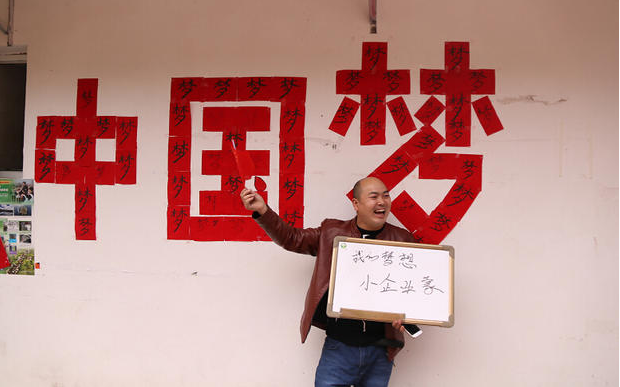 中国梦
我的梦想
小企业家